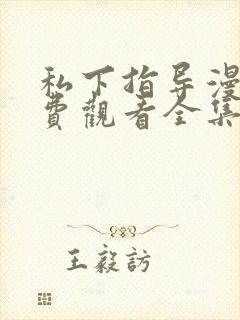 私下指导漫
費觀看全集
王毅訪